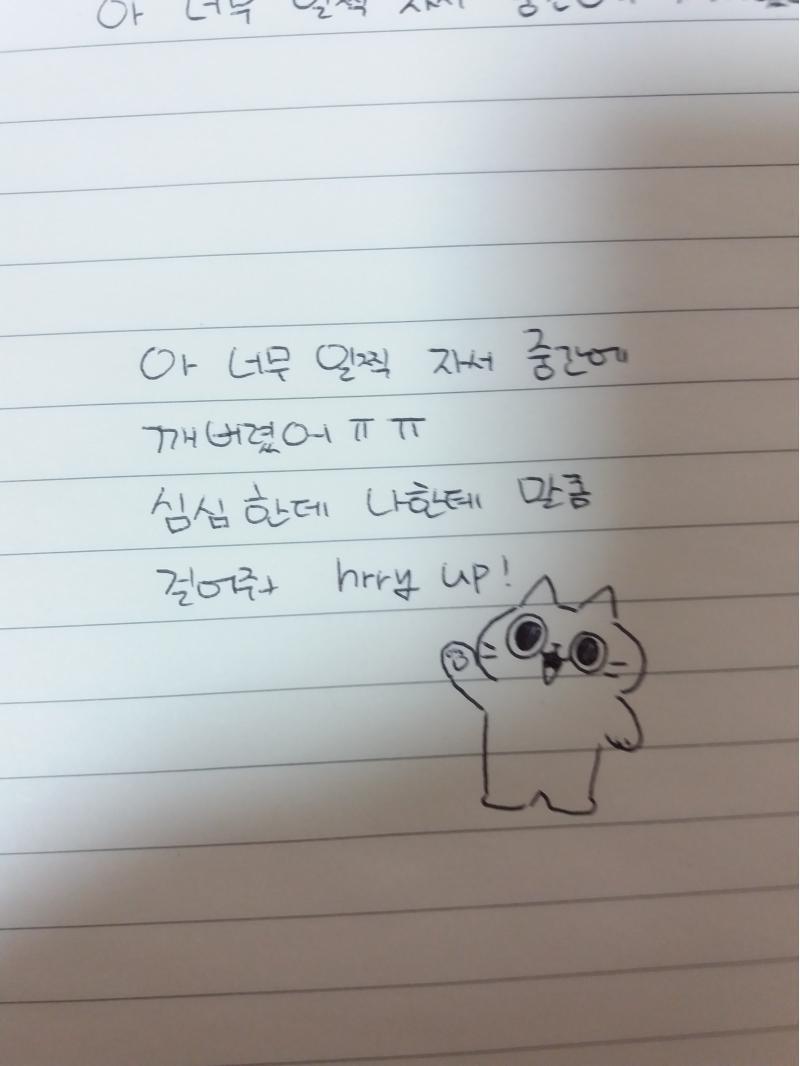 아 너무 일찍 자서 중간에
아 너무 일찍 자서 중간에
깨버렸어 ㅠㅠ
심심한데 나한테 말좀
걸어주ㅏ hrry up!